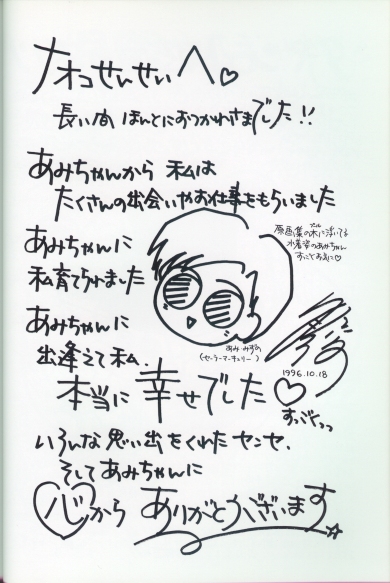 ナオコせんせいへ♡
長い間 ほんとにおつかれさまでした!!
あみちゃんから 私は
たくさんの出会いやお仕事をもらいました
原画集の水に浮いてる
プール
水着姿のあみちゃん
すっごくお気に♡
あみちゃんに
私育てられました
あみ・みずの
(セーラーマーキュリー)
あみちゃんに
出逢えて私
1996.10.18
本当に幸せでした♡
すっごくっっ
いろんな思い出をくれたセンセ、
そしてあみちゃんに
心から ありがとうございます